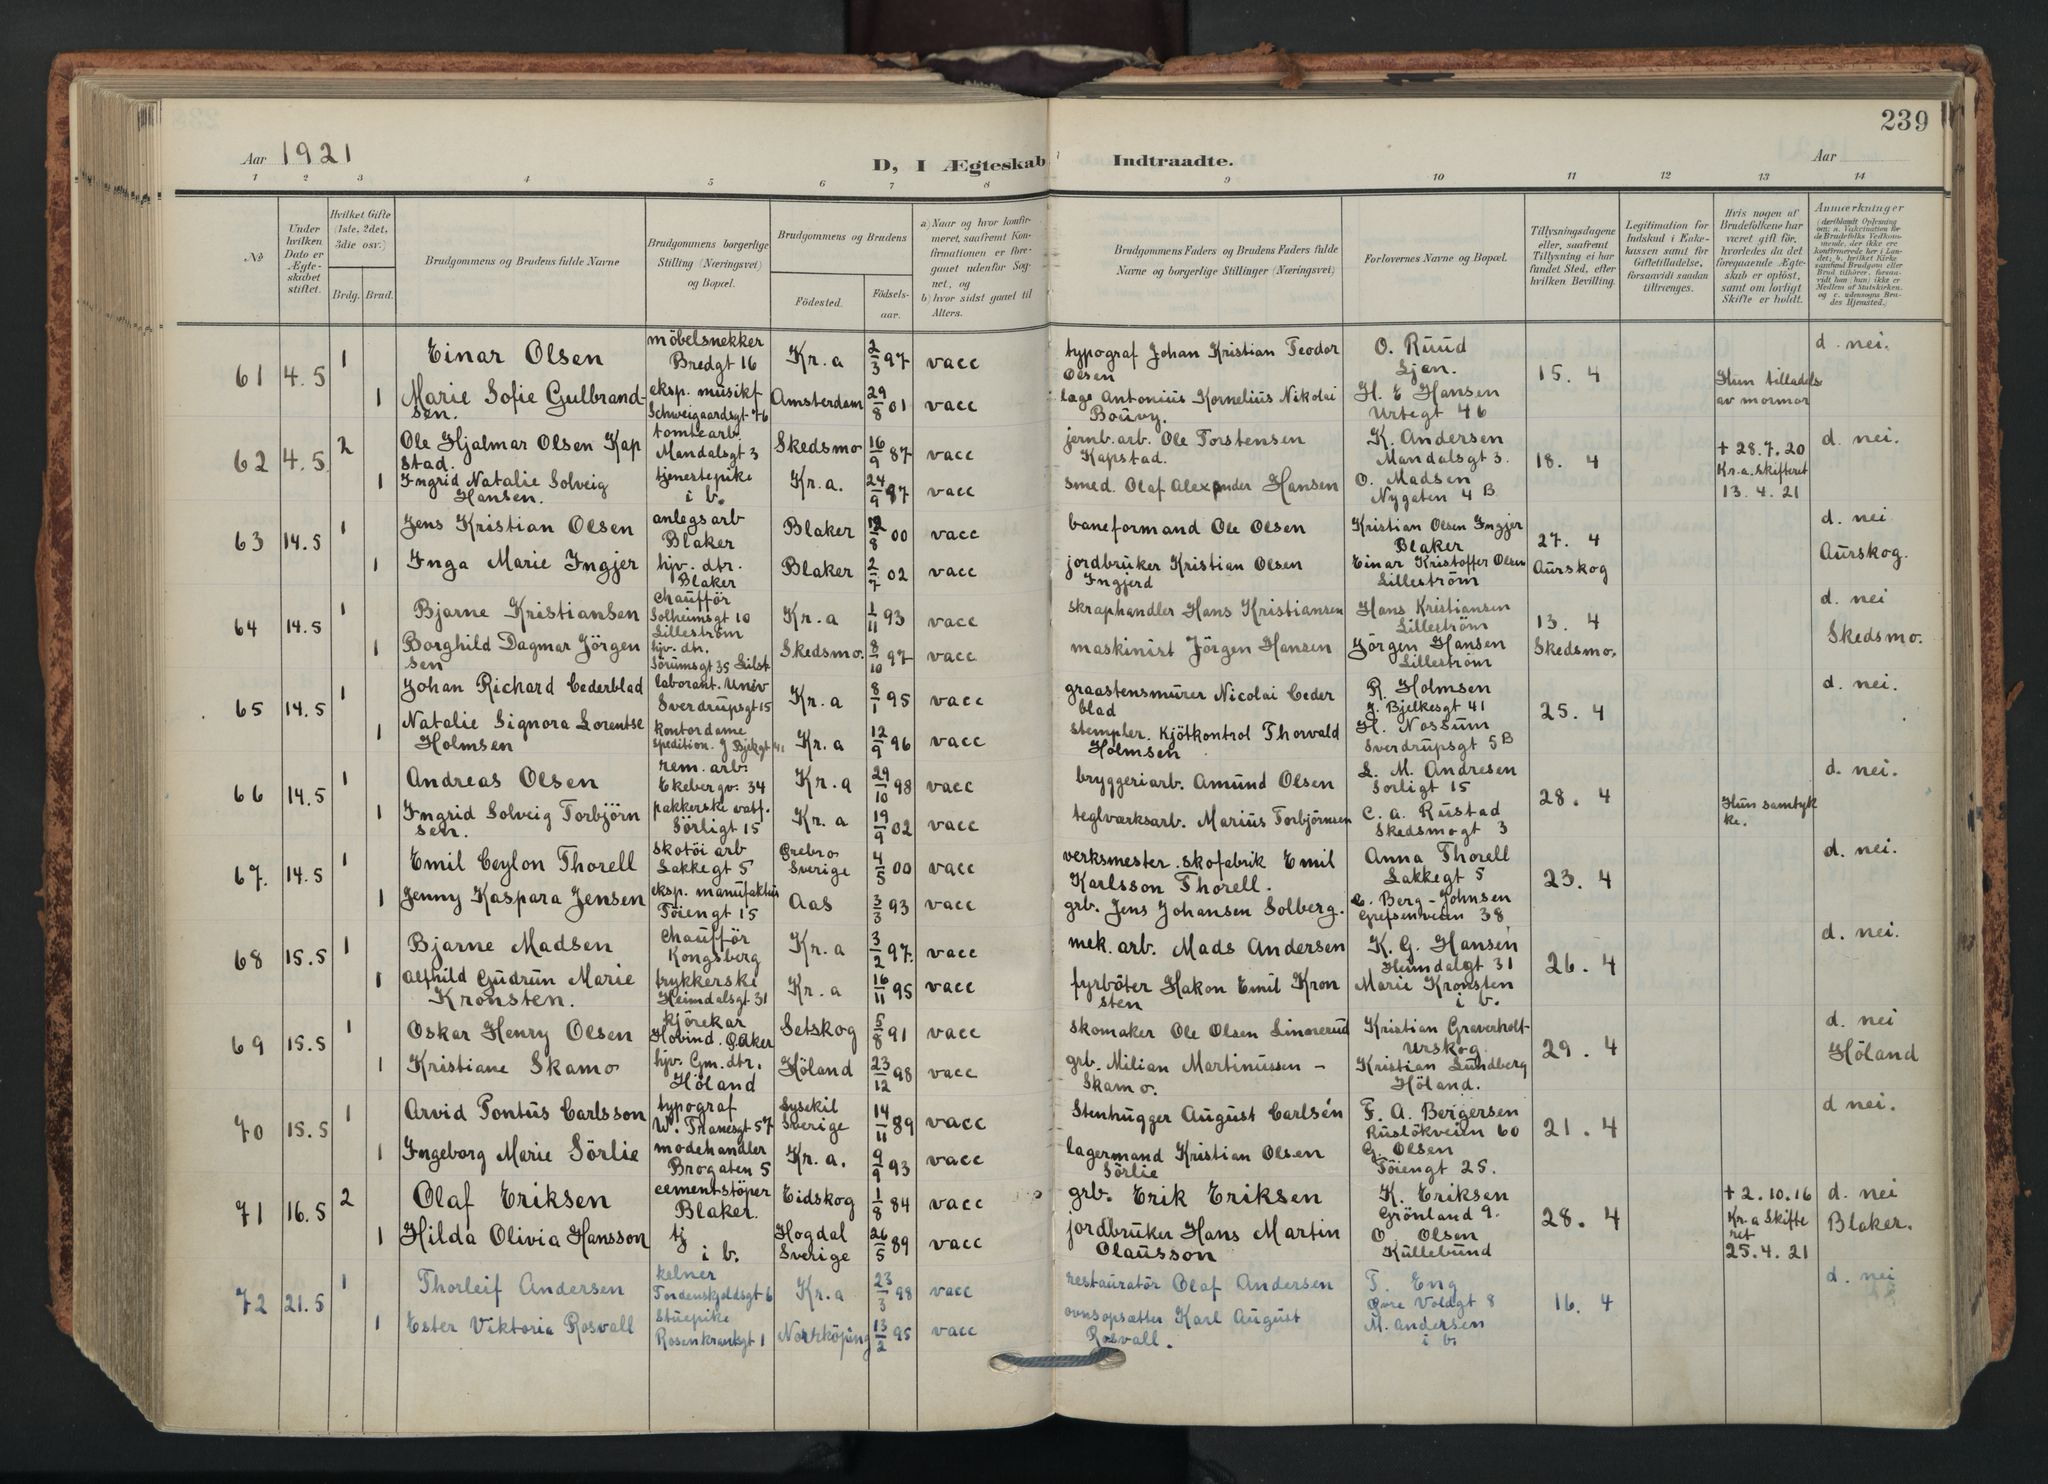 239
Aar 1921
D, I Ægteskab Indtraadte.
Aar
1 2 3 4 5 6 7 8 9 10 11 12 13 14
№
Under hvilken Dato er Ægteskabet stiftet.
Hvilket Gifte (1ste, 2det, 3die osv.)
Brdg. Brud.
Brudgommens og Brudens fulde Navne
Brudgommens borgerlige Stilling (Næringsvei) og Bopæl.
Brudgommens og Brudens
Fødested.
Fødselsaar.
a) Naar og hvor konfirmeret, saafremt Konfirmationen er foregaaet udenfor Sognet, og
b) hvor sidst gaaet til Alters.
Brudgommens Faders og Brudens Faders fulde Navne og borgerlige Stillinger (Næringsvei)
Forlovernes Navne og Bopæl.
Tillysningsdagene eller, saafremt Tillysning ei har fundet Sted, efter hvilken Bevilling.
Legitimation for Indskud i Enkekassen samt for Giftetilladelse, forsaavidt saadan tiltrænges.
Hvis nogen af Brudefolkene har været gift før, hvorledes da det foregaaende Ægteskab er opløst, samt om lovligt Skifte er holdt.
Anmærkninger
61 4.5 1 Einar Olsen møbelsnekker Bredgt 16 Kr.a 2/3 97 vacc typograf Johan Kristian Teodor Olsen O. Ruud Ljan. 15. 4 d. nei.
1 Marie Sofie Gulbrandsen. eksp. musikf Schweigaardsgt 76 Amsterdam 29/8 01 vacc Antonius Kornelius Nikolai Bouvy. H. E Hansen Urtegt 46 Hun tilladels av mormor
62 4.5 2 Ole Hjalmar Olsen Kapstad. tomtearb. Mandalsgt 3 Skedsmo 16/9 87 vacc jernb. arb. Ole Torstensen Kapstad. K. Andersen Mandalsgt 3. 18. 4 + 28.7.20 Kr.a. Skifteret 13.4.21 d. nei.
1 Ingrid Natalie Solveig Hansen. tjenestepike i b. Kr.a. 24/9 97 vacc smed. Olaf Alexander Hansen O. Madsen Nygaten 4 B
63 14.5 1 Jens Kristian Olsen anlegsarb Blaker Blaker 12/8 00 vacc baneformand Ole Olsen Kristian Olsen Ingjer Blaker 27. 4 Aurskog d. nei Aurskog.
1 Inga Marie Ingjer hjv. dtr. Blaker Blaker 2/7 02 vacc jordbruker Kristian Olsen Ingjerd Einar Kristoffer Olsen Lilleström
64 14.5 1 Bjarne Kristiansen Chaufför Solheimsgt 10 Lilleström Kr.a 1/11 93 vacc skraphandler Hans Kristiansen Hans Kristiansen Lilleström 13. 4 Skedsmo. d. nei Skedsmo.
1 Borghild Dagmar Jörgensen hjv. dtr. Sörumsgt 35 Lilst Skedsmo. 8/10 97 vacc maskinist Jörgen Hansen Jörgen Hansen Lilleström
65 14.5 1 Johan Richard Cederblad laborant. Univ Sverdrupsgt 15 Kr.a 8/1 95 vacc graastensmurer Nicolai Cederblad R. Holmsen J. Bjelkesgt 41 25. 4 d. nei.
1 Natalie Signora Lorentse Holmsen kontordame spedition. J Bjelkgt 41 Kr.a 12/9 96 vacc stempler. Kjötkontrol Thorvald Holmsen H. Nossum Sverdrupsgt 5 B
66 14.5 1 Andreas Olsen rem. arb. Ekebergv. 34 Kr.a 29/10 98 vacc bryggeriarb. Amund Olsen L. M. Andresen Sörligt 15 28. 4 d. nei.
1 Ingrid Solveig Torbjörnsen. pakkerske Sörligt 15 Kr.a 19/9 02 vacc teglværksarb. Marius Torbjörnsen C. A. Rustad Skedsmogt 3 Hun samtykke.
67. 14.5 1 Emil Ceylon Thorell skotöi arb Lakkegt 5 Örebro Sverige 4/5 00 vacc verksmester. skofabrik Emil Karlsson Thorell. Anna Thorell Lakkegt 5 23. 4 d. nei.
1 Jenny Kaspara Jensen eksp. manufaktur Töiengt 15 Aas 3/3 93 vacc grb. Jens Johansen Solberg. C. Berg-Johnsen Grefsenveien 38
68 15.5 1 Bjarne Madsen Chaufför Kongsberg Kr.a 3/2 97. vacc mek. arb. Mads Andersen K. G. Hansen Heimdalsgt 31 26. 4 d. nei.
1 Alfhild Gudrun Marie Kronsten. trykkerske Heimdalsgt 31 Kr.a 16/11 95 vacc fyrböter Hakon Emil Kronsten Marie Kronsten i b.
69 15.5 1 Oskar Henry Olsen kjörekar Hovind. Ö. Aker Setskog 5/8 91 vacc skomaker Ole Olsen Linnerud Kristian Graverholt Urskog. 29. 4 d. nei Höland
1 Kristiane Skamo hjv. Gm. dtr. Höland Höland 23/12 98 vacc grb. Milian Martinussen - Skamo. Kristian Lundberg Höland.
70 15.5 1 Arvid Pontus Carlsson typograf W. Tranesgt 57 Lysekil Sverige 14/11 89 vacc Stenhugger August Carlsén F. A. Bergersen Huslökveien 60 21. 4 d nei.
1 Ingeborg Marie Sörlie modehandler Brogaten 5 Kr.a. 9/9 93 vacc lagermand Kristian Olsen Sörlie G. Olsen Töiengt 25.
71 16.5 2 Olaf Eriksen cementstöper Blaker. Eidskog 1/8 84 vacc grb. Erik Eriksen K. Eriksen Grönland 9. 28. 4 + 2.10.16 Kr.a Skifteret 25.4.21 d. nei Blaker.
1 Hilda Olivia Hansson tj i b. Hogdal Sverige 26/5 89 vacc jordbruker Hans Martin Olausson O. Olsen Kullebund
72 21.5 1 Thorleif Andersen kelner Tordenskjoldsgt 6 Kr.a 23/3 98 vacc restauratör Olaf Andersen T. Eng Övre Voldgt 8 16. 4 d. nei
1 Ester Viktoria Rosvall Stuepike Rosenkrantsgt 1 Norrköping 13/2 95 vacc ovnsopsætter Karl August Rosvall. M. Andersen i b.